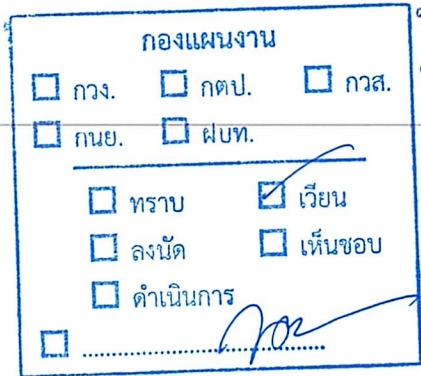 กองแผนงาน
☐ กวง. ☐ กตป. ☐ กวส.
☐ กนย. ☐ ฝบท.
☐ ทราบ ☑ เวียน
☐ ลงนัด ☐ เห็นชอบ
☐ ดำเนินการ
☐ ........................................